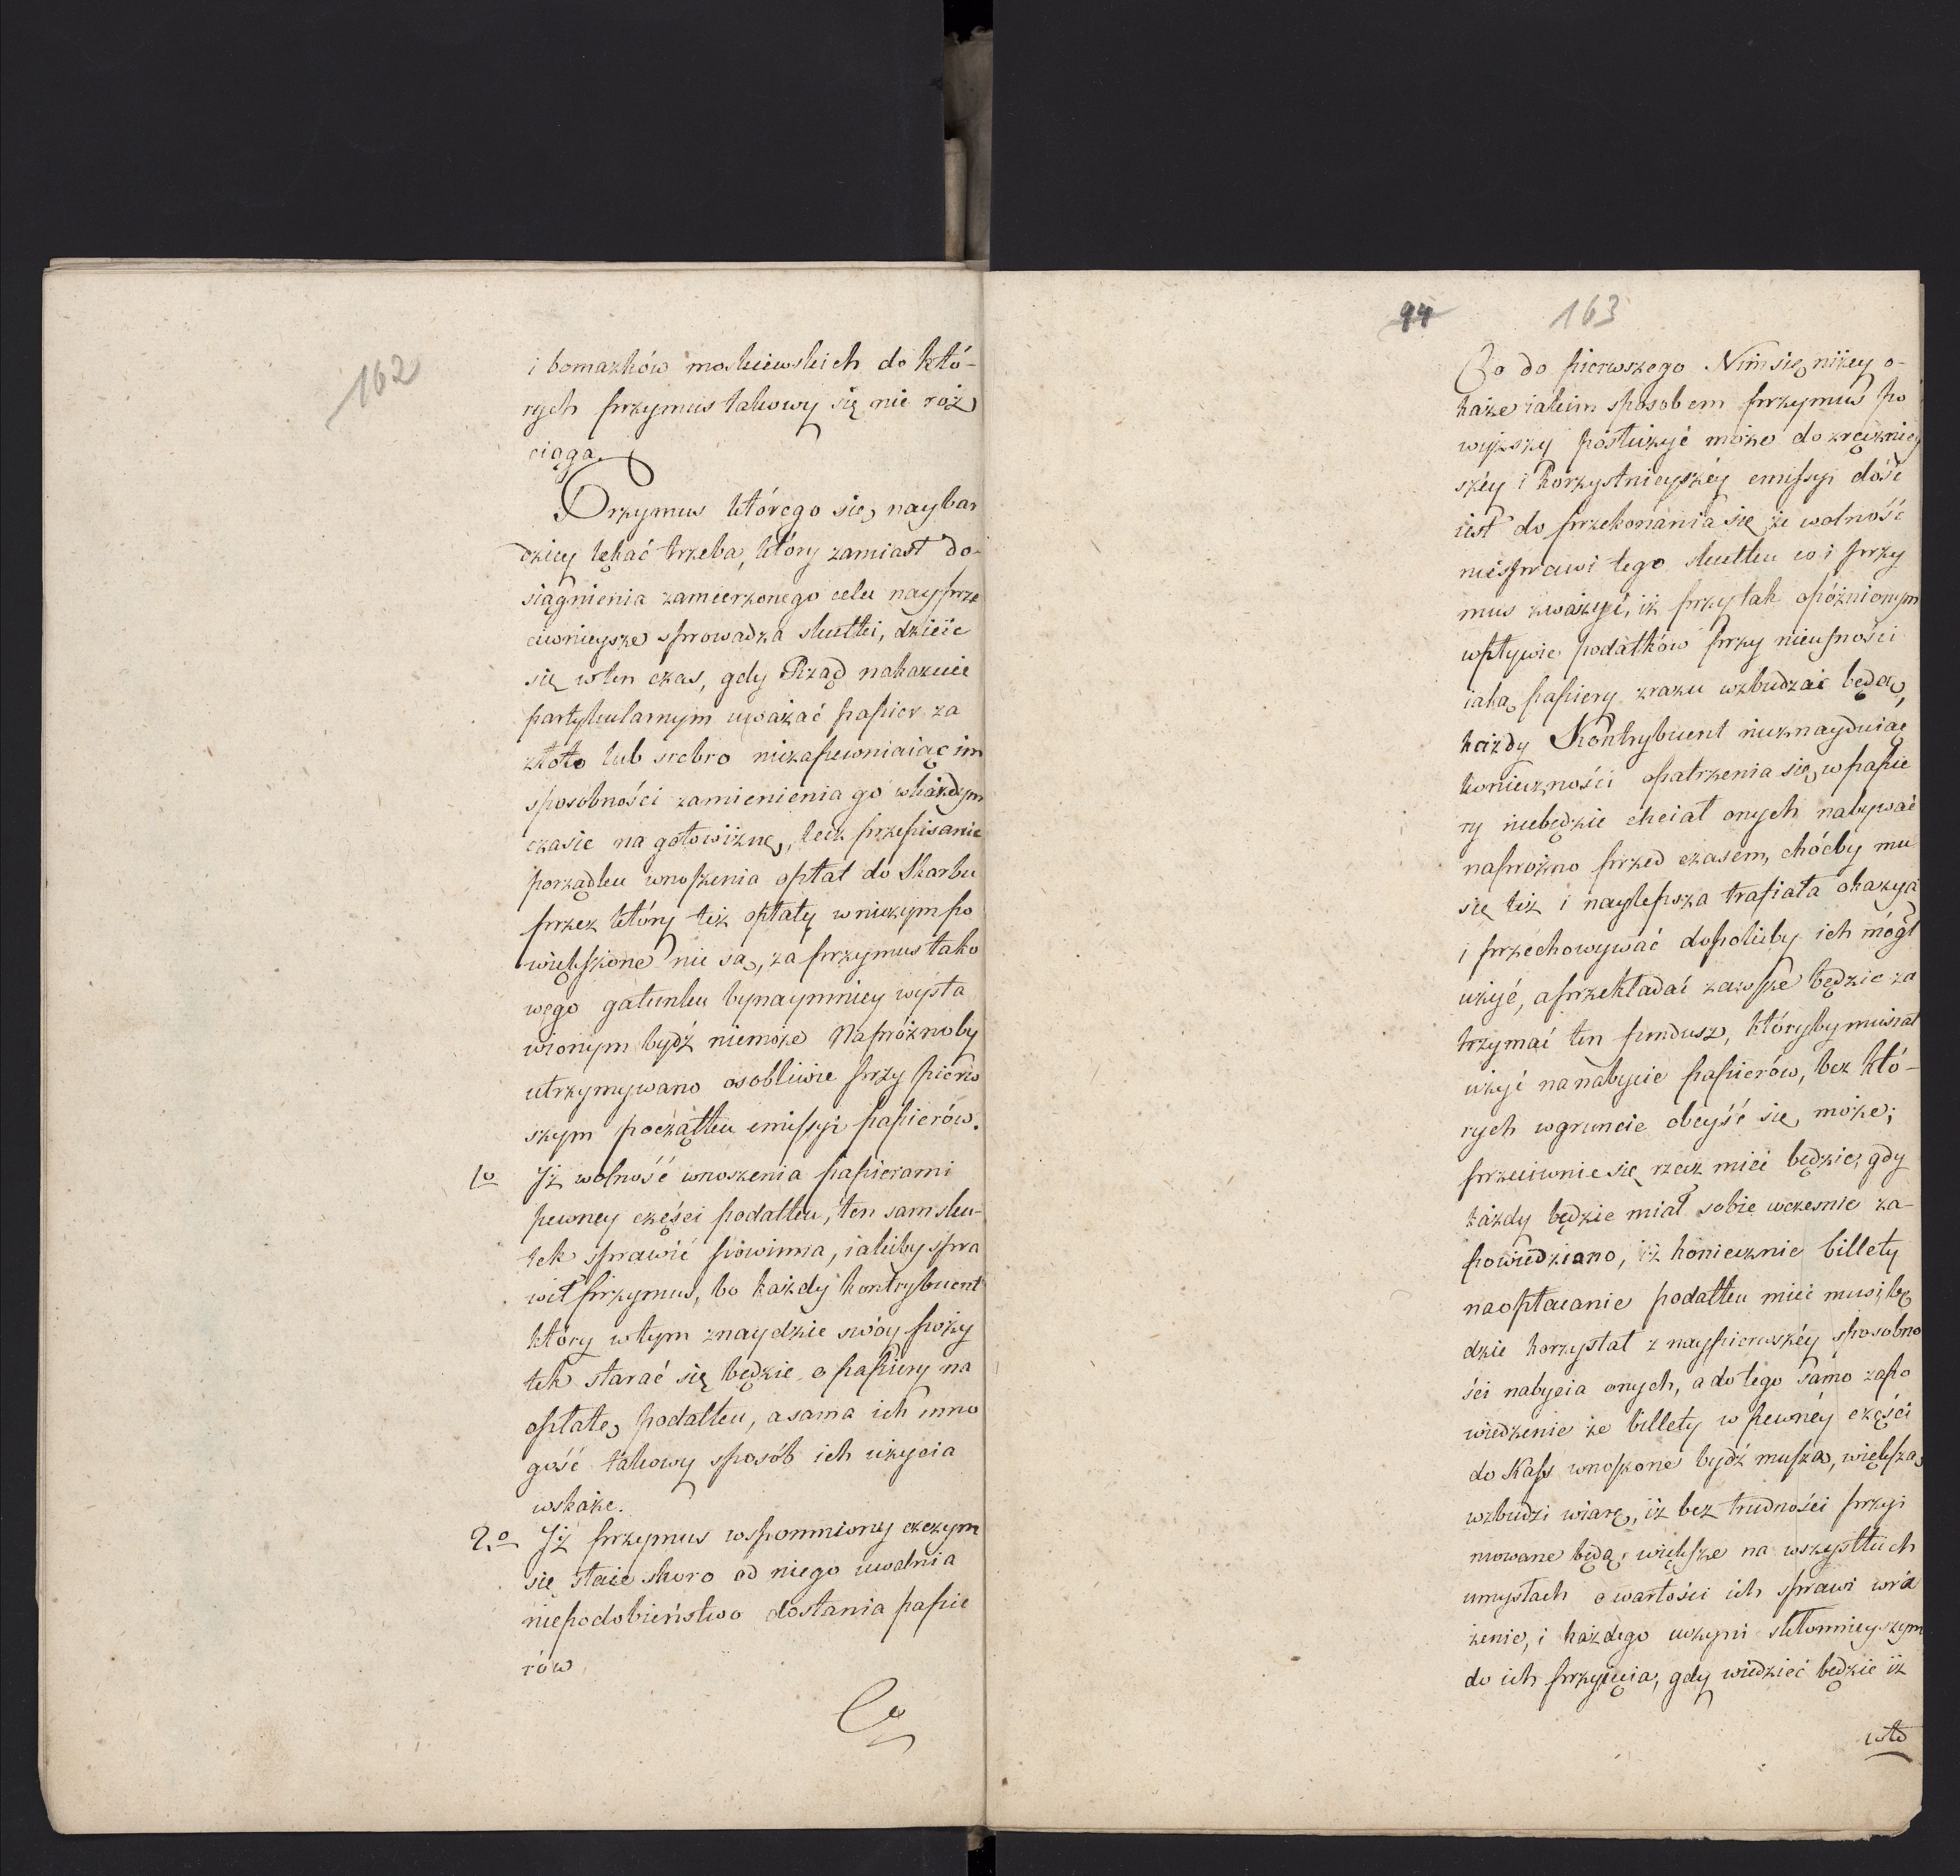 162
i bomażków moskiewskich do któ-
rych przymus takowy się nie roz
ciąga.
Przymus którego się naybar
dziey lękać trzeba, który zamiast do-
siągnienia zamierzonego celu nayprze
ciwnieysze sprowadza skutki, dzieie
się wten czas, gdy Rząd nakazuie
partykularnym uważać papier za
złoto lub srebro niezapewniaiąc im
sposobności zamienienia go wkażdym
czasie na gotowiznę, lecz przepisanie
porządku wnoszenia opłat do Skarbu
przez który też opłaty wniczym po
większone nie są, za przymus tako
wego gatunku bynaymniey wysta
wionym bydź niemoże Napróżnoby
utrzymywano osobliwie przy pierw
szym początku emissyi papierów.
1o Iż wolność wnoszenia papierami
pewney części podatku, ten sam sku-
tek sprawić powinna, iakiby spra
wił przymus, bo każdy kontrybuent
który wtym znaydzie swóy poży
tek starać się będzie o papiery na
opłatę podatku, a sama ich mno
gość takowy sposób ich użycia
wskaże.
2.o Iż przymus wspomniony czczym
się staie skoro od niego uwalnia
niepodobieństwo dostania papie
rów
Co
94 163
Co do pierwszego Nim się niżey o-
każe iakim sposobem przymus po
wyższy posłużyć może do zręczniey
széy i korzystnieyszéy emissyi dość
iest do przekonania się że wolność
niesprawi tego skutku co i przy
mus zważyć, iż przy tak opóźnionym
wpływie podatków przy nieufności
iaką papiery zrazu wzbudzać będą,
każdy Kontrybuent nieznayduiąc
konieczności opatrzenia się w papie
ry niebędzie chciał onych nabywać
naprożno przed czasem, chóćby mu
się też i naylepsza trafiała okazyia
i przechowywać dopókiby ich mógł
użyć, a przekładać zawsze będzie za
trzymać ten fundusz, któryby musiał
użyć na nabycie papierów, bez któ-
rych wgruncie obeyść się może;
przeciwnie się rzecz mieć będzie, gdy
każdy będzie miał sobie wczesnie za-
powiedziano, iż koniecznie billety
na opłacanie podatku mieć musi, bę
dzie korzystał z naypierwszéy sposobno
ści nabycia onych, a do tego samo zapo
wiedzenie że billety w pewnéy części
do Kass wnoszone bydź muszą, większą
wzbudzi wiarę, iż bez trudności przyi
mowane będą; większe na wszystkich
umysłach o wartości ich sprawi wra
żenie, i każdego uczyni skłonnieyszym
do ich przyięcia, gdy wiedzieć będzie iż